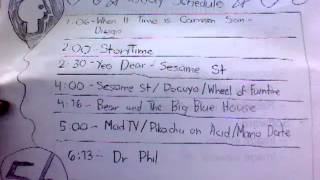 Schedule
1:06-When It Time is Common Son-
Drago
2:00-StoryTime
2:30-Yeo Dear-Sesame St
4:00-Sesame St/Docuyo/Wheel of Fourtne
4:16-Bear and The Big Blue House
5:00-MadTV/Pikachu on Acid/Mario Date
6:13-Dr Phil
56